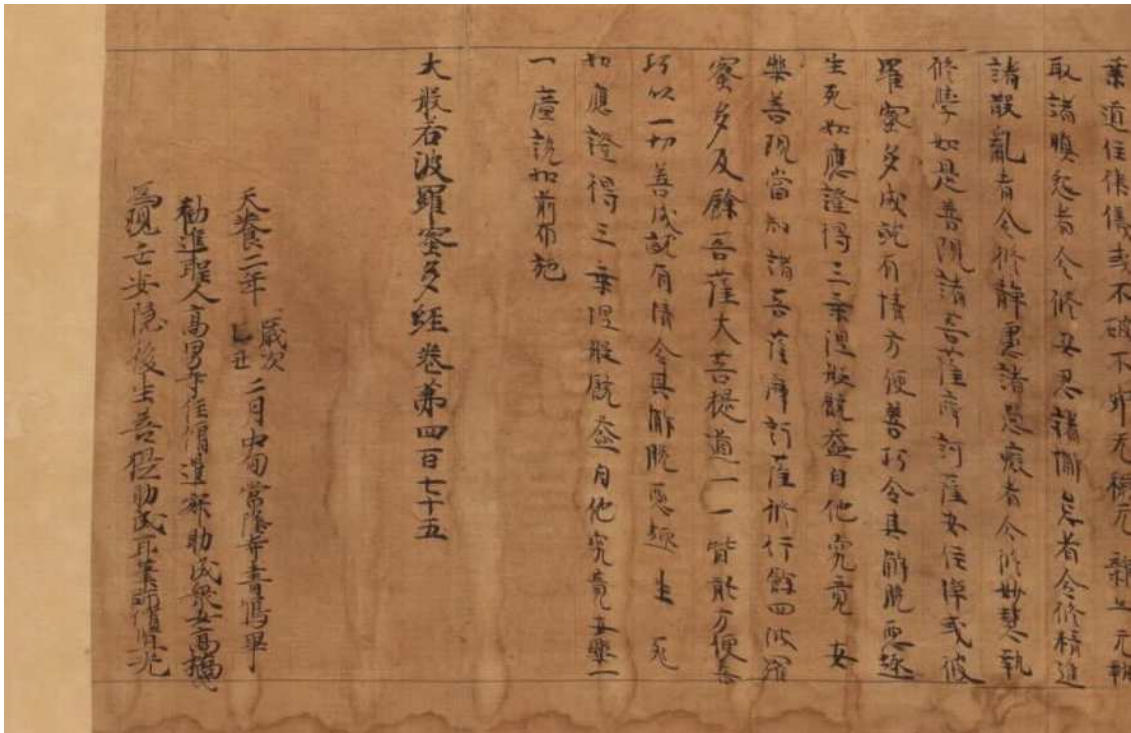 業道住律儀或不破不穿无穢元雜上元執
取諸瞋忿者令修安忍諸懈怠者令修精進
諸散亂者令修靜慮諸愚癡者令修妙慧執
修學如是善現諸菩薩摩訶薩安住淨戒波
羅蜜多成就有情方便善巧令其解脫惡趣
生死如應證得三乘涅般饒益自他究竟安
樂善現當知諸菩薩摩訶薩修行餘四波羅
蜜多及餘菩薩大菩提道一一皆能方便善
巧以一切善成就有情令其解脫惡趣生死
如應證得三乘涅般饒益自他究竟安樂一
一廣說如前布施
大般若波羅蜜多經卷第四百七十五
天養二年歲次乙丑二月中旬常隆寺書寫畢
勸進聖人高男子住僧進助成衆女高橋氏
為現世安隱後生菩提助成